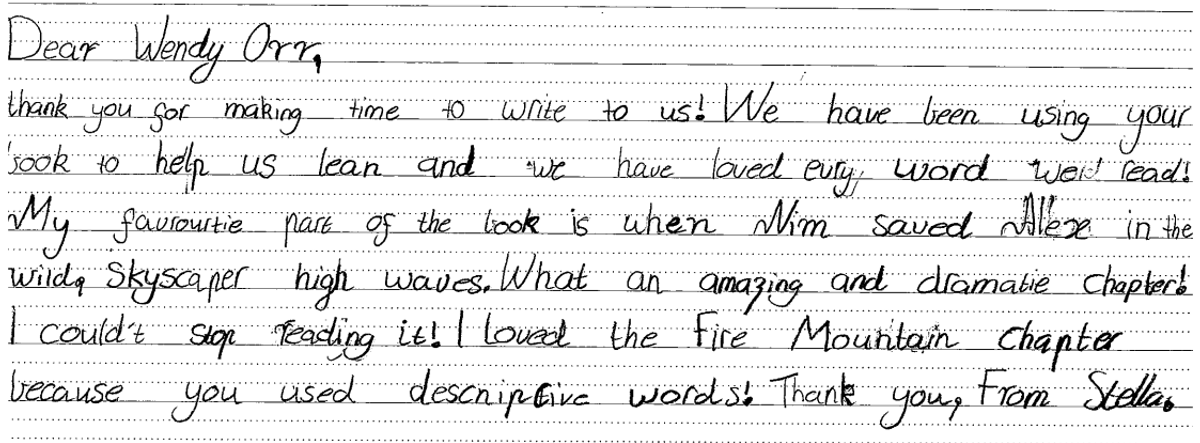 Dear Wendy Orr,
thank you for making time to write to us! We have been using your
book to help us lean and we have loved evry, word weid read!
My favrourtie part of the book is when Nim saved Alex in the
wild, Skyscaper high waves. What an amazing and dramatie chapter!
I could't stop reading it! I loved the Fire Mountain chapter
because you used descriptive words! Thank you, From Stella.